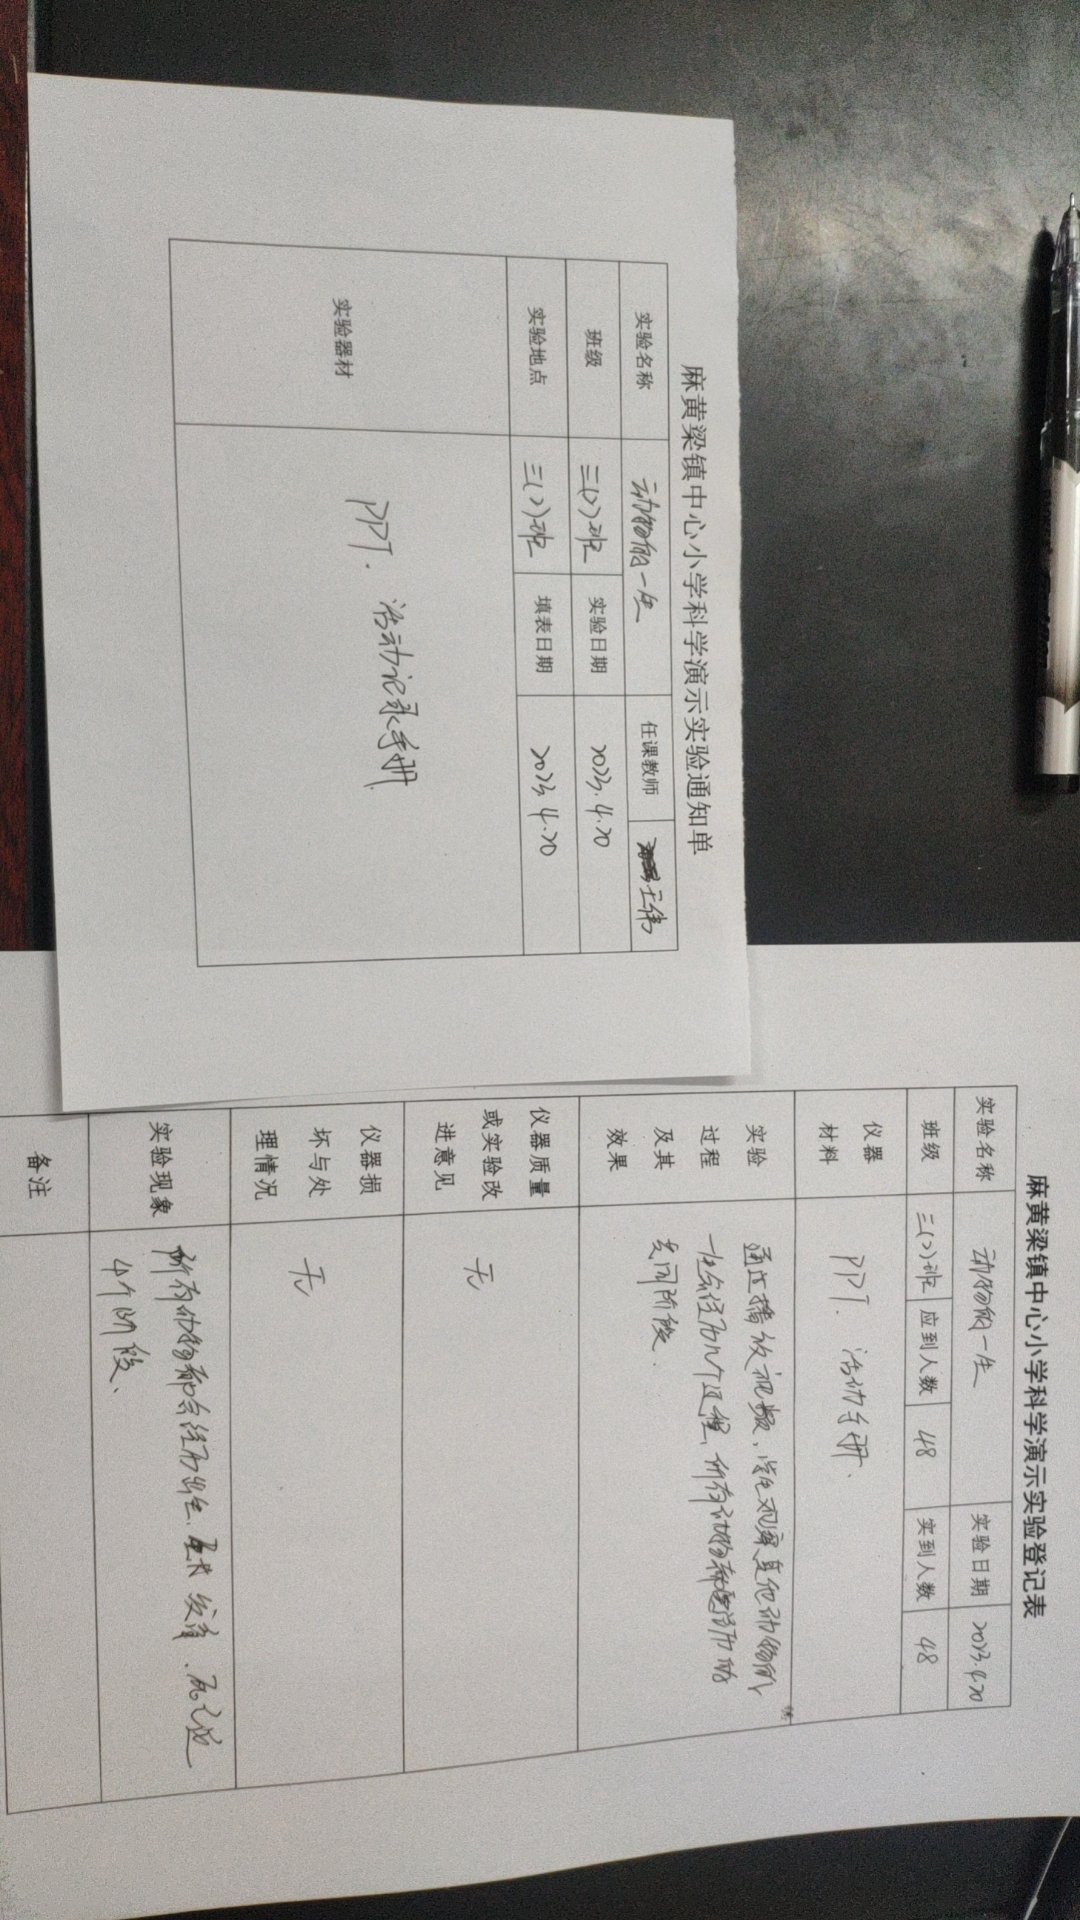 麻黄梁镇中心小学科学演示实验通知单
实验名称 动物的一生 任课教师 王伟
班级 三(2)班 实验日期 2023.4.20
实验地点 三(2)班 填表日期 2023.4.20
实验器材 PPT. 活动记录手册
麻黄梁镇中心小学科学演示实验登记表
实验名称 动物的一生 实验日期 2023.4.20
班级 三(2)班 应到人数 48 实到人数 48
仪器
材料
PPT. 活动手册.
实验
过程
及其
效果
通过播放视频,学生观察其他动物的
一生会经历几个过程,所有动物都要经历的
共同阶段.
仪器质量
或实验改
进意见
无
仪器损
坏与处
理情况
无
实验现象
所有动物都会经历出生、发育、死亡
4个阶段、
备注